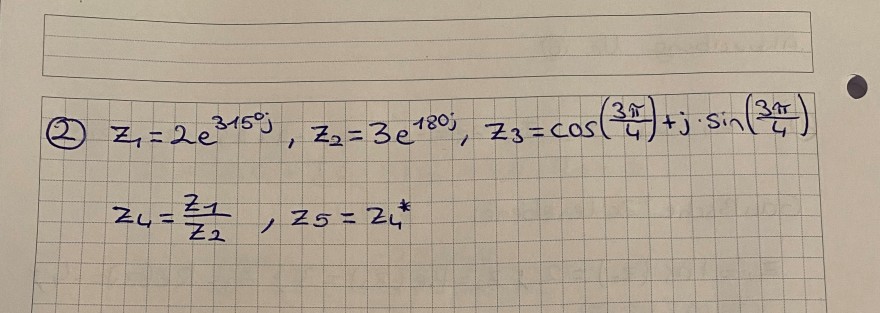 ② z₁ = 2e^315°j, z₂ = 3e^180j, z₃ = cos(3π/4) + j · sin(3π/4)
z₄ = z₁/z₂, z₅ = z₄*